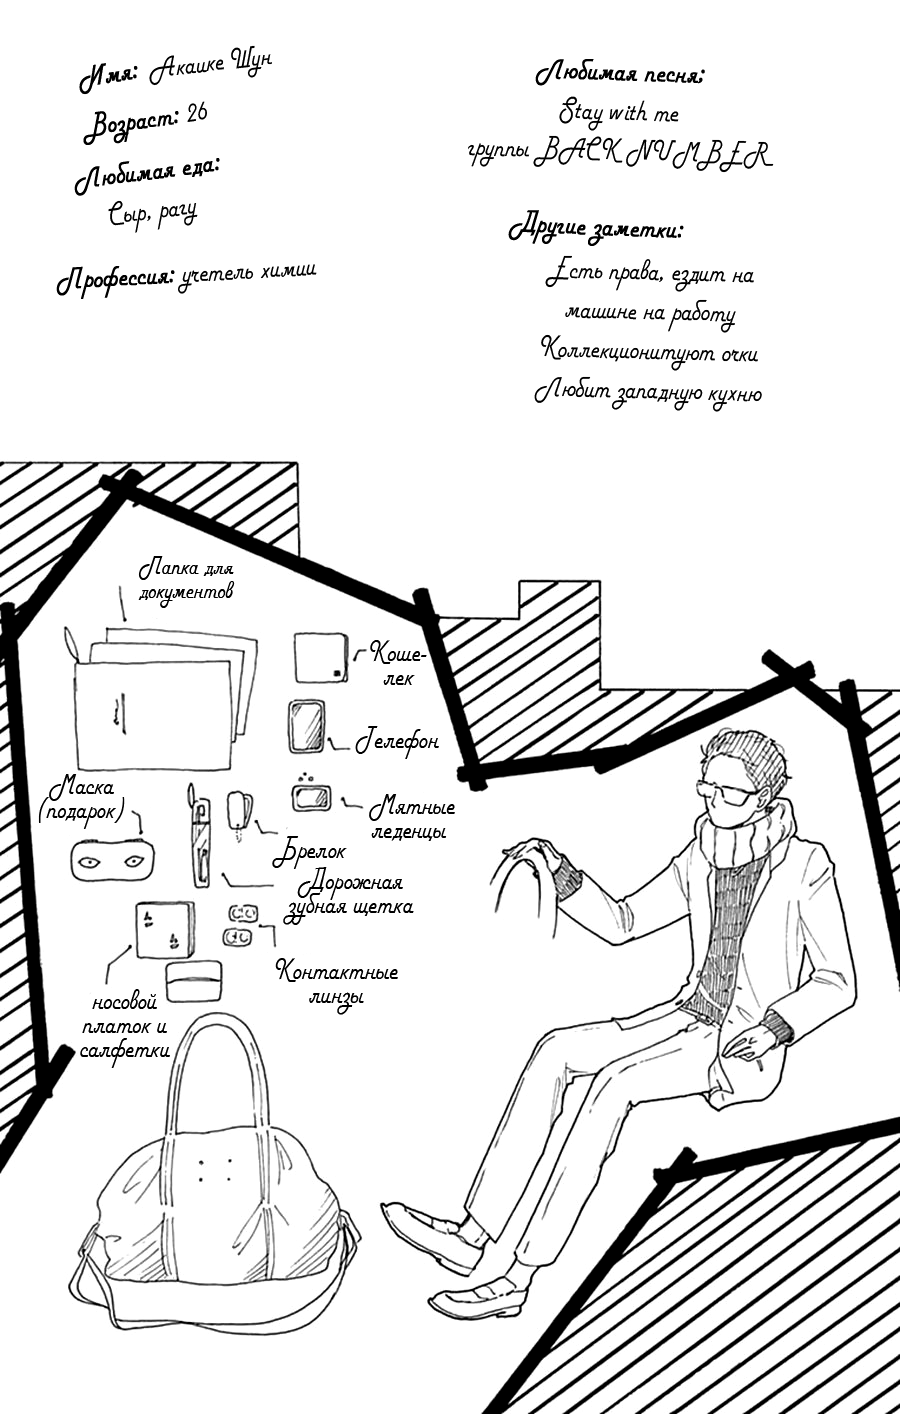 Имя: Акашке Шун
Возраст: 26
Любимая еда:
Сыр, рагу
Профессия: учетель химии
Любимая песня:
Stay with me
группы BACK NUMBER
Другие заметки:
Есть права, ездит на
машине на работу
Коллекционитуют очки
Любит западную кухню
Папка для
документов
Коше-
лек
Телефон
Маска
(подарок)
Мятные
леденцы
Брелок
Дорожная
зубная щетка
Контактные
линзы
носовой
платок и
салфетки